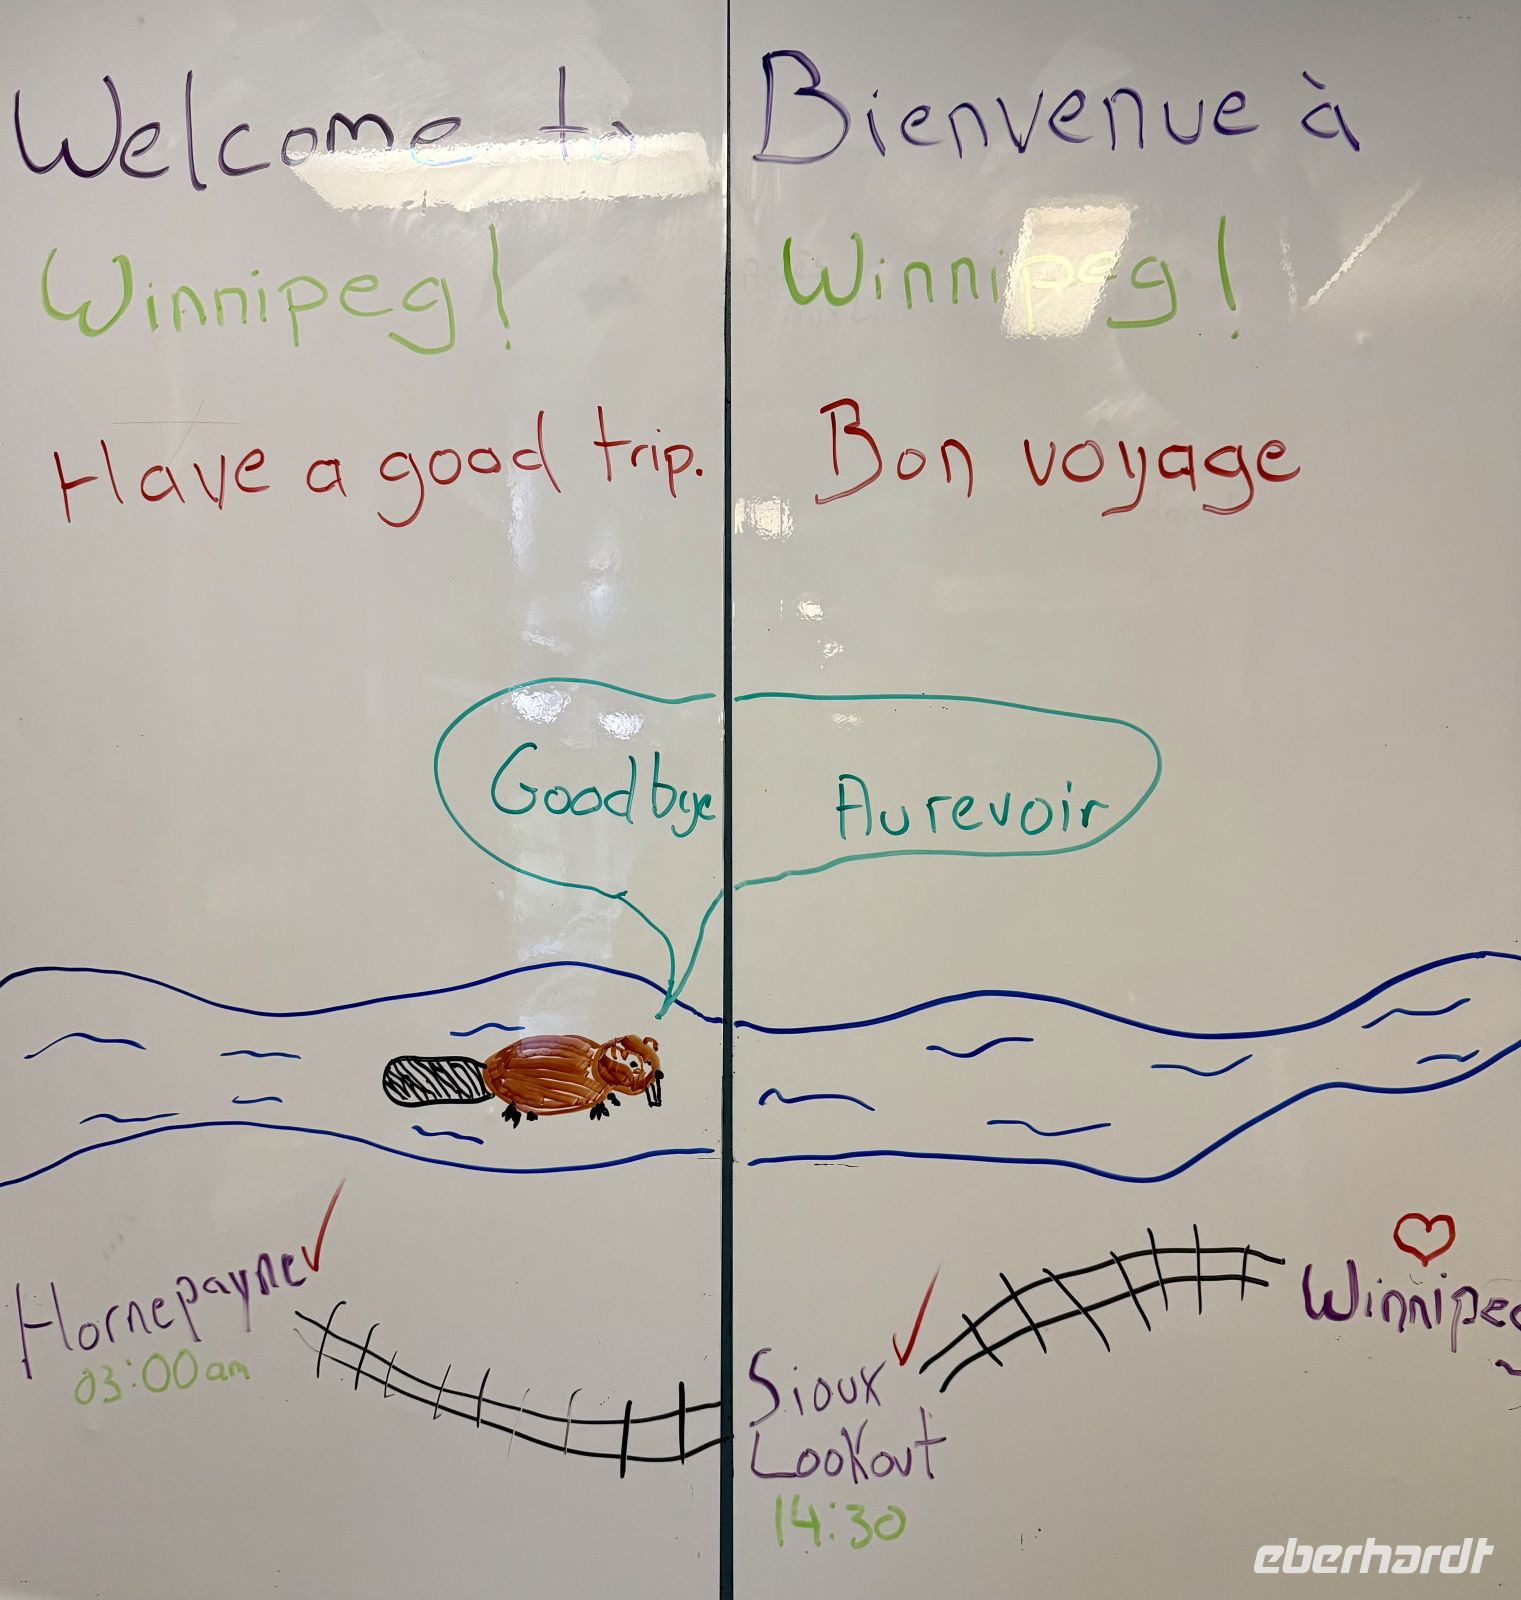 Welcome to
Winnipeg!
Have a good trip.
Bienvenue à
Winnipeg!
Bon voyage
Goodbye
Au revoir
Hornepayne
03:00am
Sioux
Lookout
14:30
Winnipeg
eberhardt